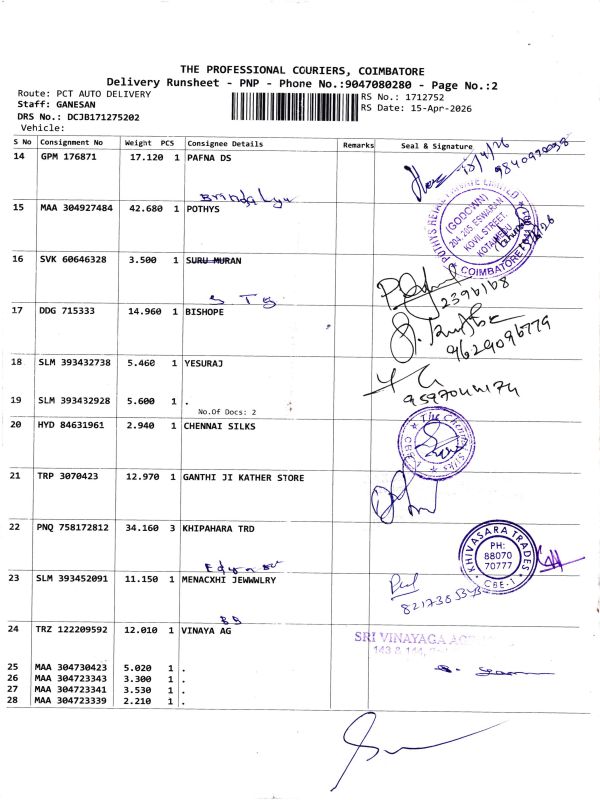 THE PROFESSIONAL COURIERS, COIMBATORE
Delivery Runsheet - PNP - Phone No.:9047080280 - Page No.:2
Route: PCT AUTO DELIVERY
Staff: GANESAN
DRS No.: DCJB171275202
Vehicle:
RS No.: 1712752
RS Date: 15-Apr-2026
S No Consignment No Weight PCS Consignee Details Remarks Seal & Signature
14 GPM 176871 17.120 1 PAFNA DS
15/4/26
15 MAA 304927484 42.680 1 POTHYS
POTHYS RETAIL PRIVATE LIMITED
(GODOWN)
204, 205, ESWARAN
KOVIL STREET,
KOTAIMEDU
COIMBATORE
16 SVK 60646328 3.500 1 SURU MURAN
17 DDG 715333 14.960 1 BISHOPE
9629096779
18 SLM 393432738 5.460 1 YESURAJ
19 SLM 393432928 5.600 1 .
No.Of Docs: 2
20 HYD 84631961 2.940 1 CHENNAI SILKS
The Chennai Silks
21 TRP 3070423 12.970 1 GANTHI JI KATHER STORE
22 PNQ 758172812 34.160 3 KHIPAHARA TRD
KHIVASARA TRADES
PH:
88070
70777
CBE-1
23 SLM 393452091 11.150 1 MENACXHI JEWWWLRY
24 TRZ 122209592 12.010 1 VINAYA AG
SRI VINAYAGA
143 & 144,
25 MAA 304730423 5.020 1 .
26 MAA 304723343 3.300 1 .
27 MAA 304723341 3.530 1 .
28 MAA 304723339 2.210 1 .